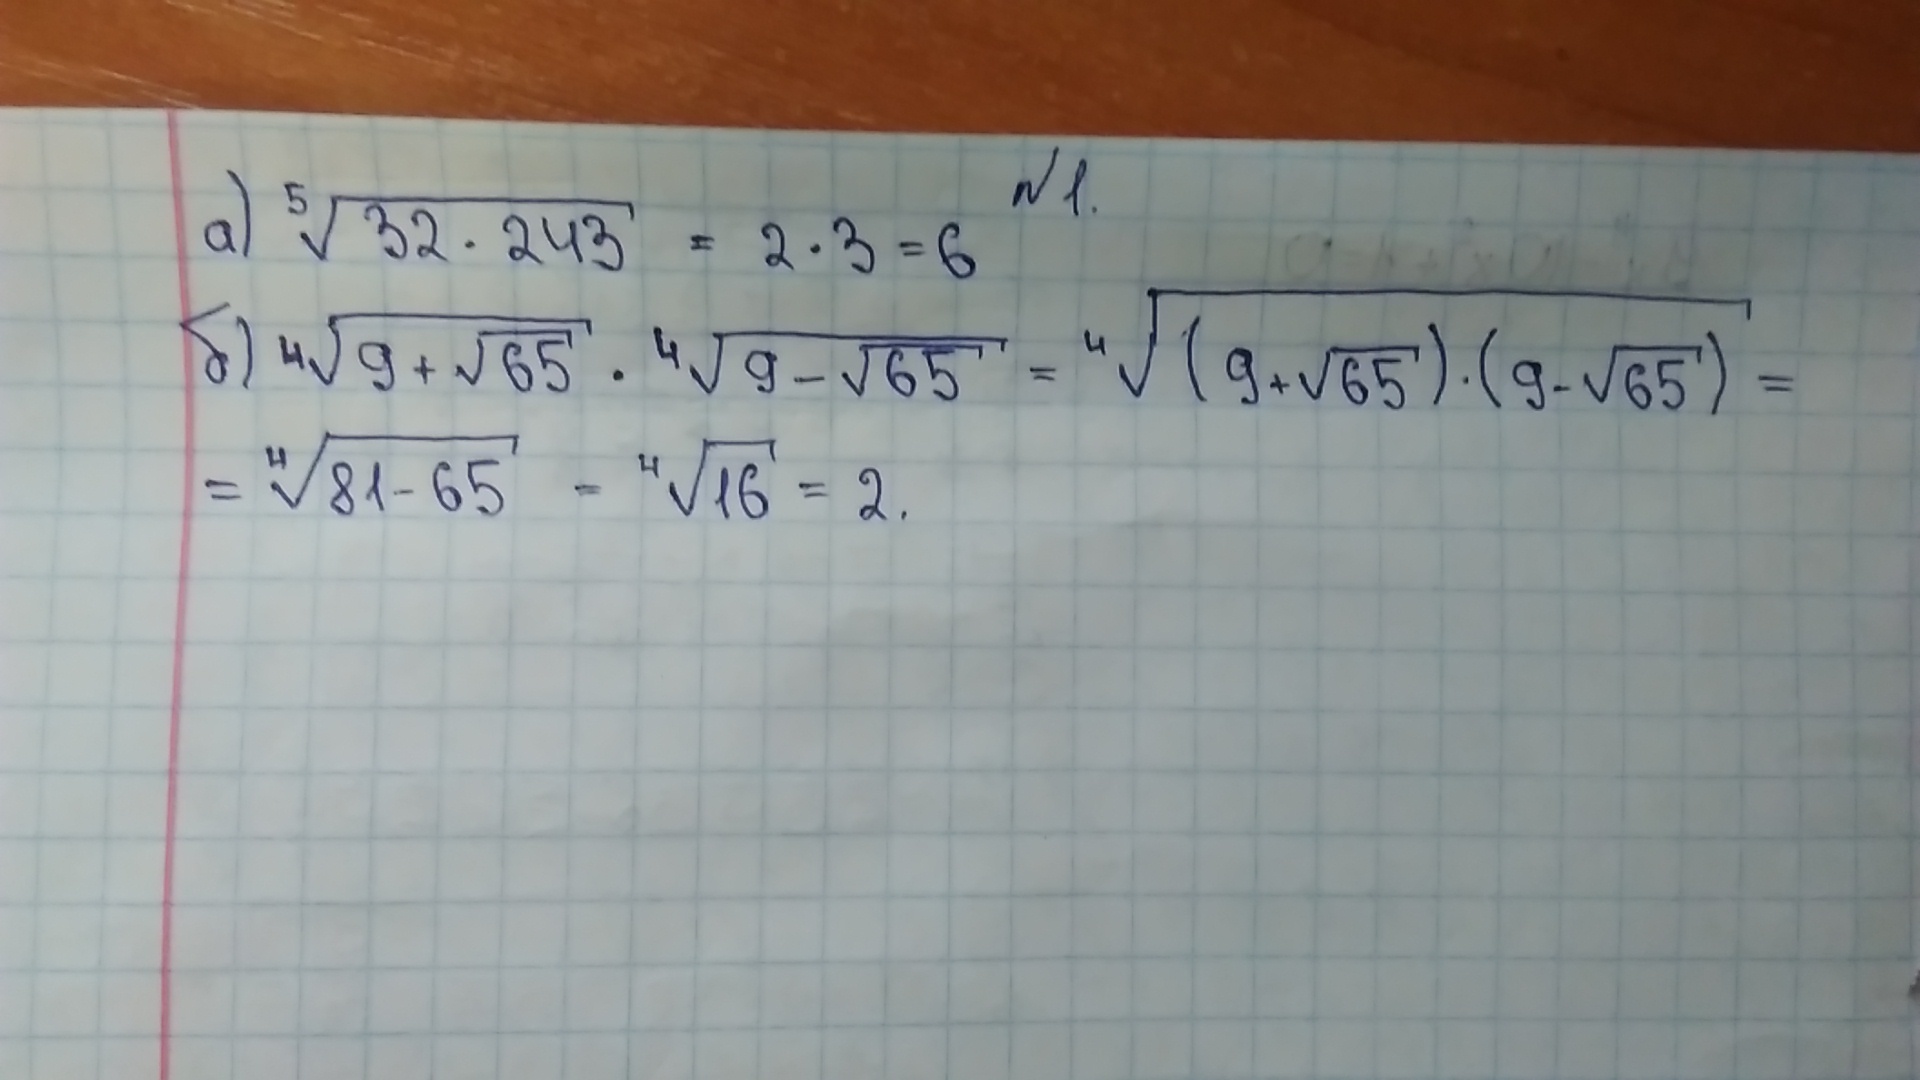 №1.
а) ⁵√(32 · 243) = 2 · 3 = 6
б) ⁴√(9 + √65) · ⁴√(9 - √65) = ⁴√((9 + √65) · (9 - √65)) =
= ⁴√(81 - 65) = ⁴√16 = 2.